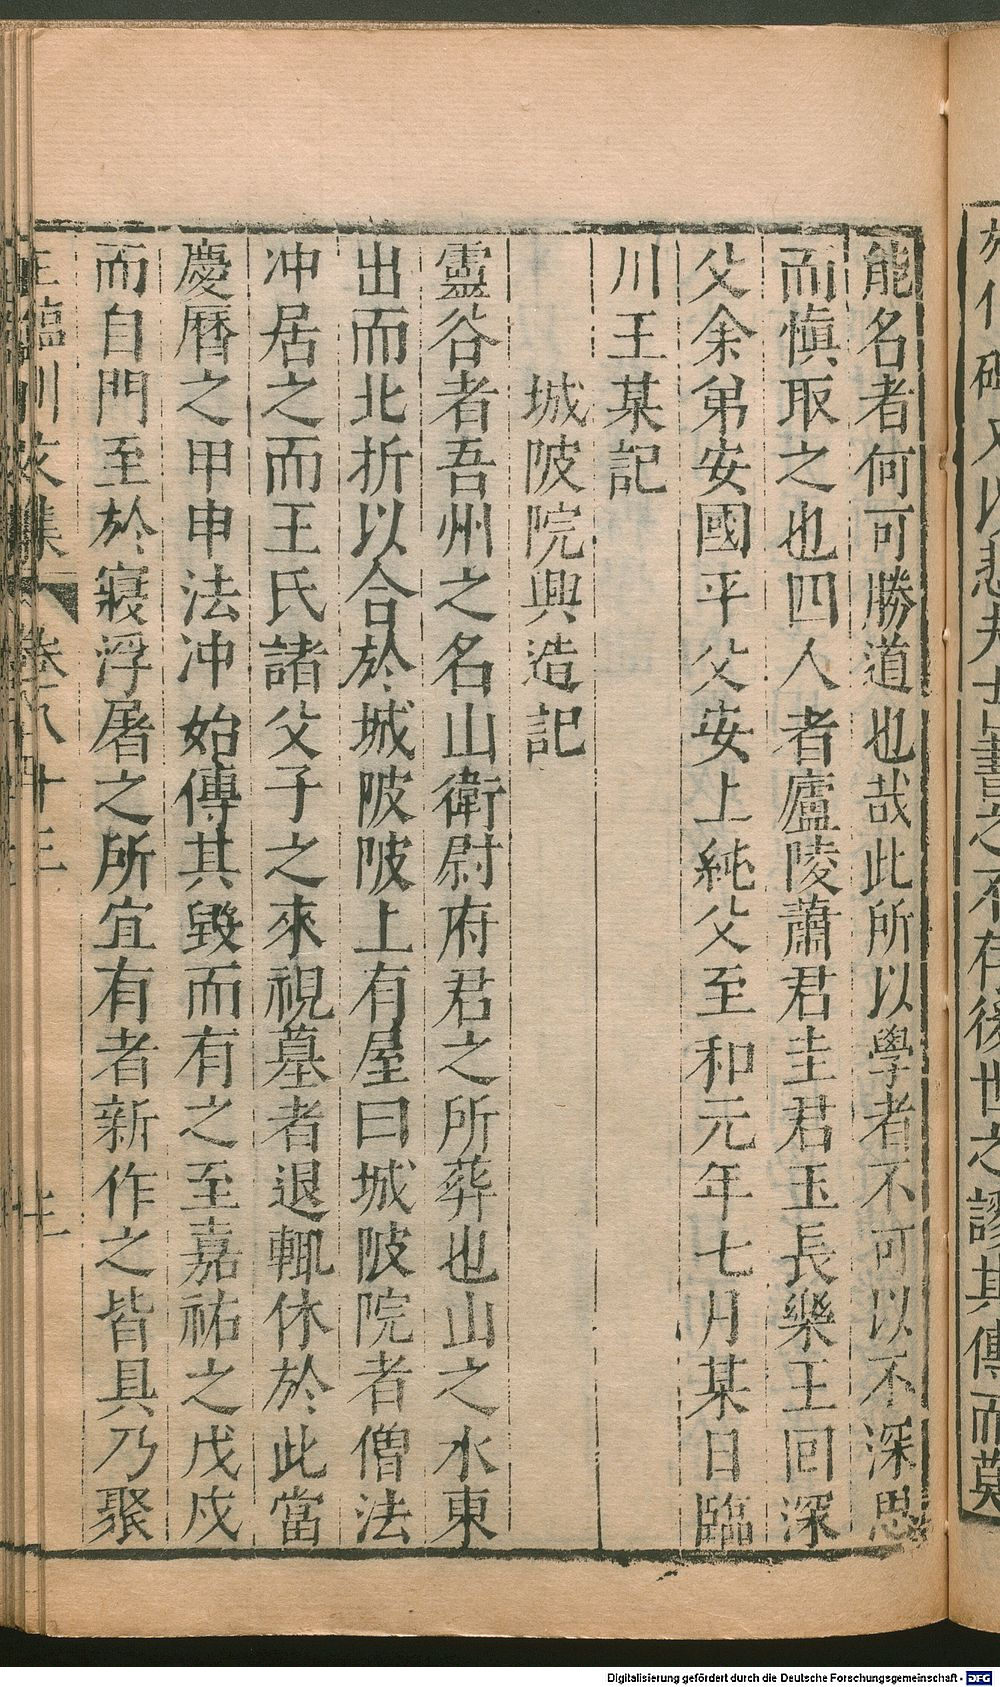 於仆碑又以悲夫古書之不存後世之謬其傳而莫
能名者何可勝道也哉此所以學者不可以不深思
而慎取之也四人者廬陵蕭君圭君玉長樂王回深
父余弟安國平父安上純父至和元年七月某日臨
川王某記
城陂院興造記
靈谷者吾州之名山衛尉府君之所葬也山之水東
出而北折以合於城陂陂上有屋曰城陂院者僧法
冲居之而王氏諸父子之來視墓者退輒休於此當
慶曆之甲申法冲始傳其毀而有之至嘉祐之戊戌
而自門至於寢浮屠之所宜有者新作之皆具乃聚
王臨川文集 卷八十三 十二
Digitalisierung gefördert durch die Deutsche Forschungsgemeinschaft - DFG